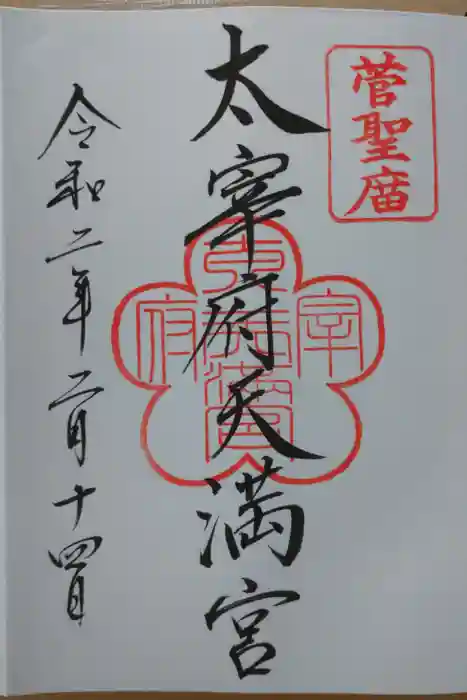 菅聖庿
太宰府天満宮
令和二年二月十四日